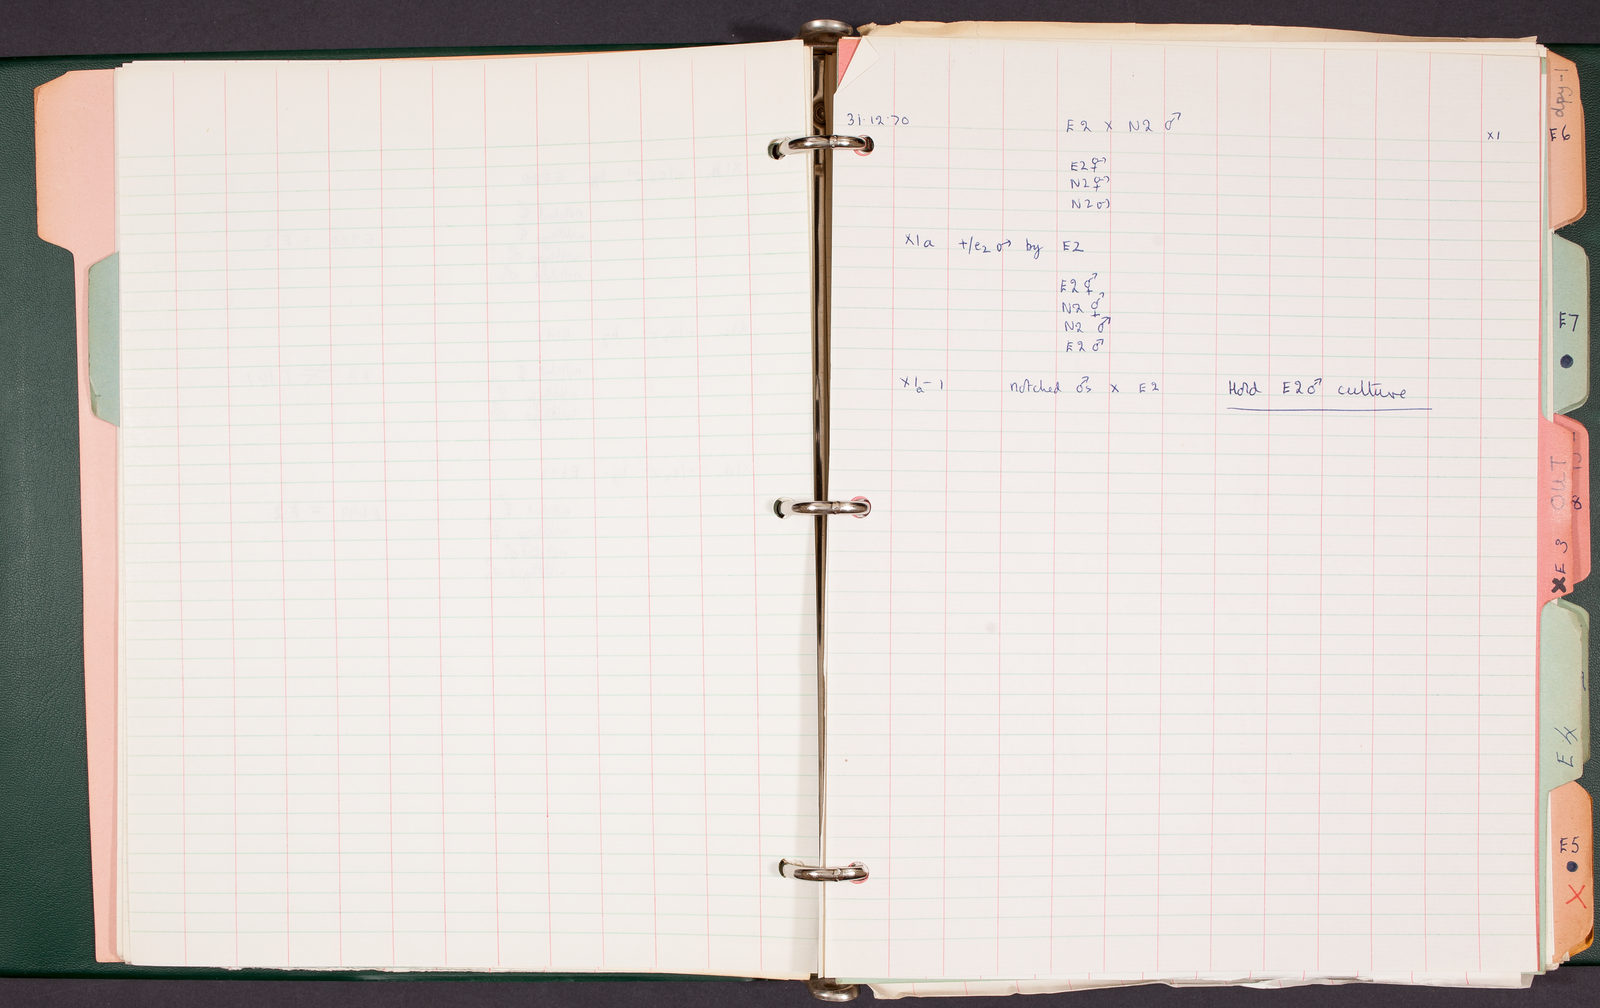 31.12.70 E2 x N2 ♂ x1
E2 ⚥
N2 ⚥
N2 ♂
x1a +/e2 ♂ by E2
E2 ⚥
N2 ⚥
N2 ♂
E2 ♂
x1a-1 notched ♂s x E2 Hold E2♂ culture
dpy-1
E6
E7
OUT
8
XE3
E5
X